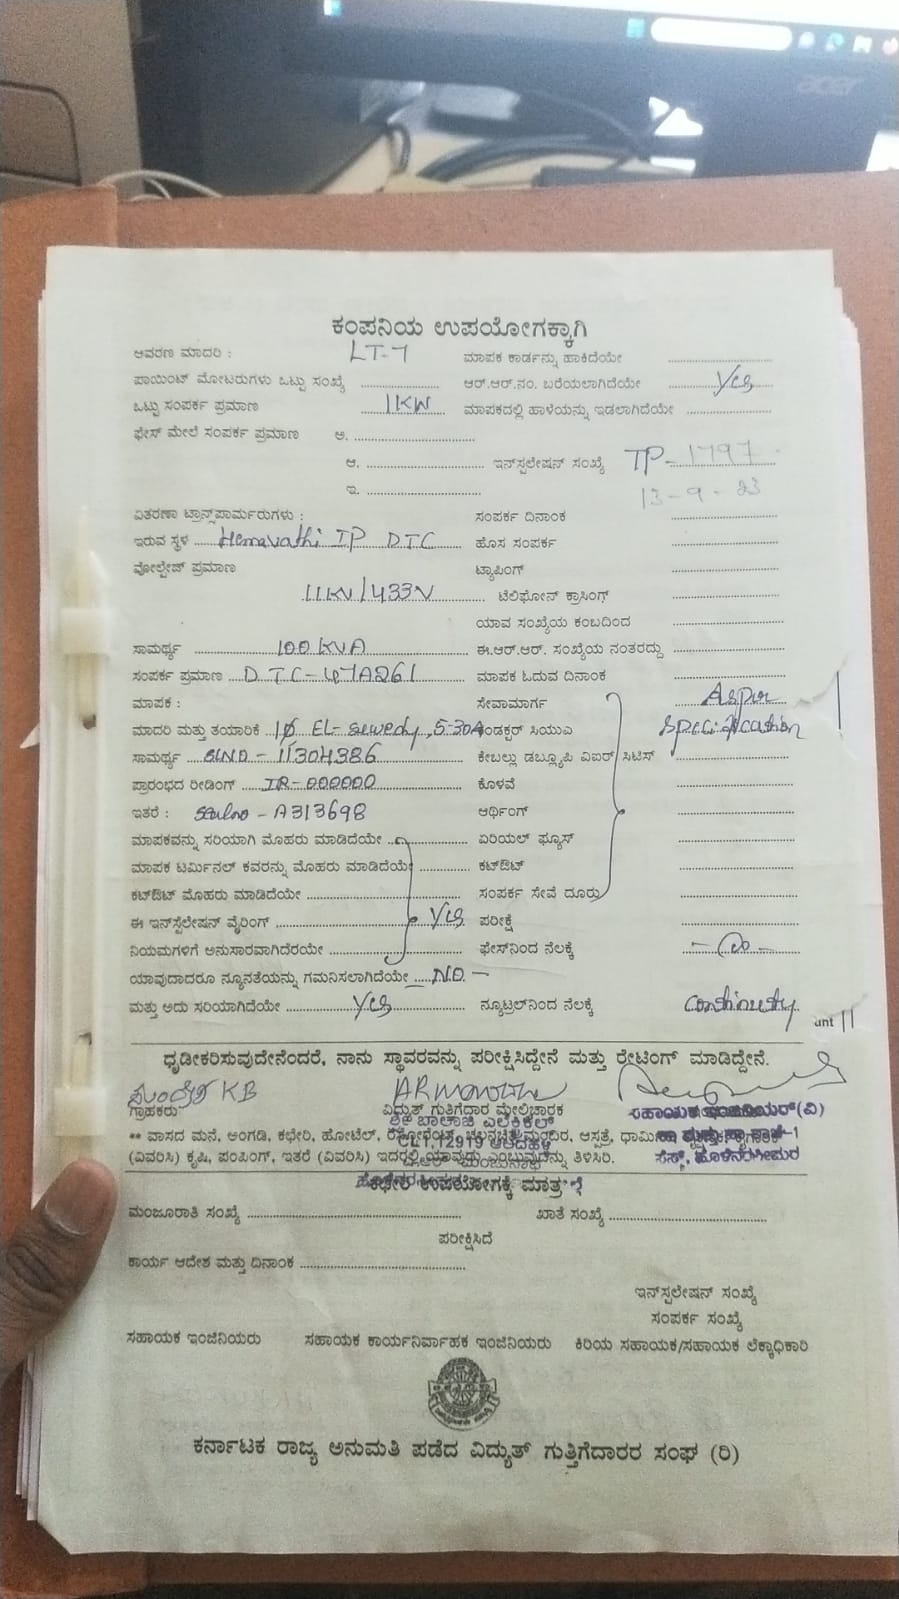 acer
ಕಂಪನಿಯ ಉಪಯೋಗಕ್ಕಾಗಿ
ಆವರಣ ಮಾದರಿ : LT-7 ಮಾಪಕ ಕಾರ್ಡನ್ನು ಹಾಕಿದೆಯೇ
ಪಾಯಿಂಟ್ ಮೋಟರುಗಳು ಒಟ್ಟು ಸಂಖ್ಯೆ ಆರ್.ಆರ್.ನಂ. ಬರೆಯಲಾಗಿದೆಯೇ Yes
ಒಟ್ಟು ಸಂಪರ್ಕ ಪ್ರಮಾಣ 1KW ಮಾಪಕದಲ್ಲಿ ಹಾಳೆಯನ್ನು ಇಡಲಾಗಿದೆಯೇ
ಫೇಸ್ ಮೇಲೆ ಸಂಪರ್ಕ ಪ್ರಮಾಣ ಅ.
ಆ. ಇನ್‌ಸ್ಟಲೇಷನ್ ಸಂಖ್ಯೆ TP-1797
ಇ. 13-9-23
ವಿತರಣಾ ಟ್ರಾನ್ಸ್‌ಪಾರ್ಮರುಗಳು : ಸಂಪರ್ಕ ದಿನಾಂಕ
ಇರುವ ಸ್ಥಳ Hemavathi IP DTC ಹೊಸ ಸಂಪರ್ಕ
ವೋಲ್ಟೇಜ್ ಪ್ರಮಾಣ ಟ್ಯಾಪಿಂಗ್
11KV/433V ಟೆಲಿಫೋನ್ ಕ್ರಾಸಿಂಗ್
ಯಾವ ಸಂಖ್ಯೆಯ ಕಂಬದಿಂದ
ಸಾಮರ್ಥ್ಯ 100KVA ಈ.ಆರ್.ಆರ್. ಸಂಖ್ಯೆಯ ನಂತರದ್ದು
ಸಂಪರ್ಕ ಪ್ರಮಾಣ DTC-47A261 ಮಾಪಕ ಓದುವ ದಿನಾಂಕ
ಮಾಪಕ : ಸೇವಾಮಾರ್ಗ As per
ಮಾದರಿ ಮತ್ತು ತಯಾರಿಕೆ 1Ø EL-sewedy, 5-30A ಕಂಡಕ್ಟರ್ ಸಿಯುಎ specification
ಸಾಮರ್ಥ್ಯ SLNO-11304386 ಕೇಬಲ್ಲು ಡಬ್ಲ್ಯೂಪಿ ವಿಐಆರ್ ಸಿಟಿಸ್
ಪ್ರಾರಂಭದ ರೀಡಿಂಗ್ IR-000000 ಕೊಳವೆ
ಇತರೆ : Sealno-A313698 ಆರ್ಥಿಂಗ್
ಮಾಪಕವನ್ನು ಸರಿಯಾಗಿ ಮೊಹರು ಮಾಡಿದೆಯೇ ಏರಿಯಲ್ ಫ್ಯೂಸ್
ಮಾಪಕ ಟರ್ಮಿನಲ್ ಕವರನ್ನು ಮೊಹರು ಮಾಡಿದೆಯೇ ಕಟ್‌ಔಟ್
ಕಟ್‌ಔಟ್ ಮೊಹರು ಮಾಡಿದೆಯೇ ಸಂಪರ್ಕ ಸೇವೆ ದೂರು
ಈ ಇನ್‌ಸ್ಟಲೇಷನ್ ವೈರಿಂಗ್ Yes ಪರೀಕ್ಷೆ
ನಿಯಮಗಳಿಗೆ ಅನುಸಾರವಾಗಿದೆರಯೇ ಫೇಸ್‌ನಿಂದ ನೆಲಕ್ಕೆ
ಯಾವುದಾದರೂ ನ್ಯೂನತೆಯನ್ನು ಗಮನಿಸಲಾಗಿದೆಯೇ NO
ಮತ್ತು ಅದು ಸರಿಯಾಗಿದೆಯೇ Yes ನ್ಯೂಟ್ರಲ್‌ನಿಂದ ನೆಲಕ್ಕೆ continuty
unt
ಧೃಡೀಕರಿಸುವುದೇನೆಂದರೆ, ನಾನು ಸ್ಥಾವರವನ್ನು ಪರೀಕ್ಷಿಸಿದ್ದೇನೆ ಮತ್ತು ರೇಟಿಂಗ್ ಮಾಡಿದ್ದೇನೆ.
KB
ಗ್ರಾಹಕರು ವಿದ್ಯುತ್ ಗುತ್ತಿಗೆದಾರ ಮೇಲ್ವಿಚಾರಕ ಸಹಾಯಕ ಇಂಜಿನಿಯರ್(ವಿ)
** ವಾಸದ ಮನೆ, ಅಂಗಡಿ, ಕಛೇರಿ, ಹೋಟೆಲ್,
(ವಿವರಿಸಿ) ಕೃಷಿ, ಪಂಪಿಂಗ್, ಇತರೆ (ವಿವರಿಸಿ) ಇದರಲ್ಲಿ ಯಾವುದು ಎಂಬುವುದನ್ನು ತಿಳಿಸಿರಿ.
ಕಛೇರಿ ಉಪಯೋಗಕ್ಕೆ ಮಾತ್ರ
ಮಂಜೂರಾತಿ ಸಂಖ್ಯೆ ಖಾತೆ ಸಂಖ್ಯೆ
ಪರೀಕ್ಷಿಸಿದೆ
ಕಾರ್ಯ ಆದೇಶ ಮತ್ತು ದಿನಾಂಕ
ಇನ್‌ಸ್ಟಲೇಷನ್ ಸಂಖ್ಯೆ
ಸಂಪರ್ಕ ಸಂಖ್ಯೆ
ಸಹಾಯಕ ಇಂಜಿನಿಯರು ಸಹಾಯಕ ಕಾರ್ಯನಿರ್ವಾಹಕ ಇಂಜಿನಿಯರು ಕಿರಿಯ ಸಹಾಯಕ/ಸಹಾಯಕ ಲೆಕ್ಕಾಧಿಕಾರಿ
ಕರ್ನಾಟಕ ರಾಜ್ಯ ಅನುಮತಿ ಪಡೆದ ವಿದ್ಯುತ್ ಗುತ್ತಿಗೆದಾರರ ಸಂಘ (ರಿ)